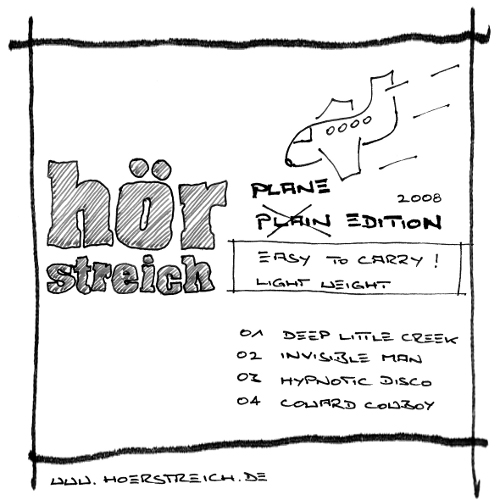 hör
streich
PLANE
2008
PLAIN EDITION
EASY TO CARRY!
LIGHT WEIGHT
01 DEEP LITTLE CREEK
02 INVISIBLE MAN
03 HYPNOTIC DISCO
04 COWARD COWBOY
WWW.HOERSTREICH.DE